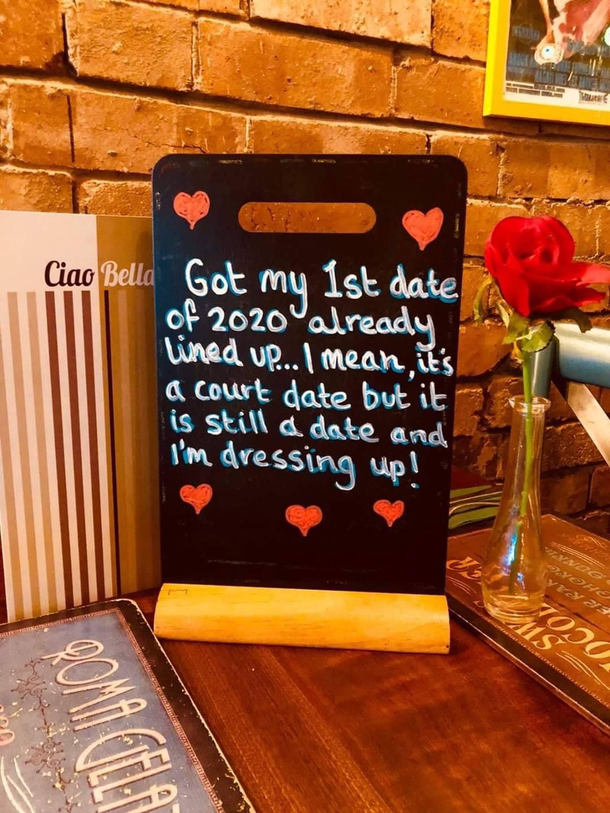 Ciao Bella
Got my 1st date
of 2020 already
lined up... I mean, it's
a court date but it
is still a date and
I'm dressing up!
ROMA GELA